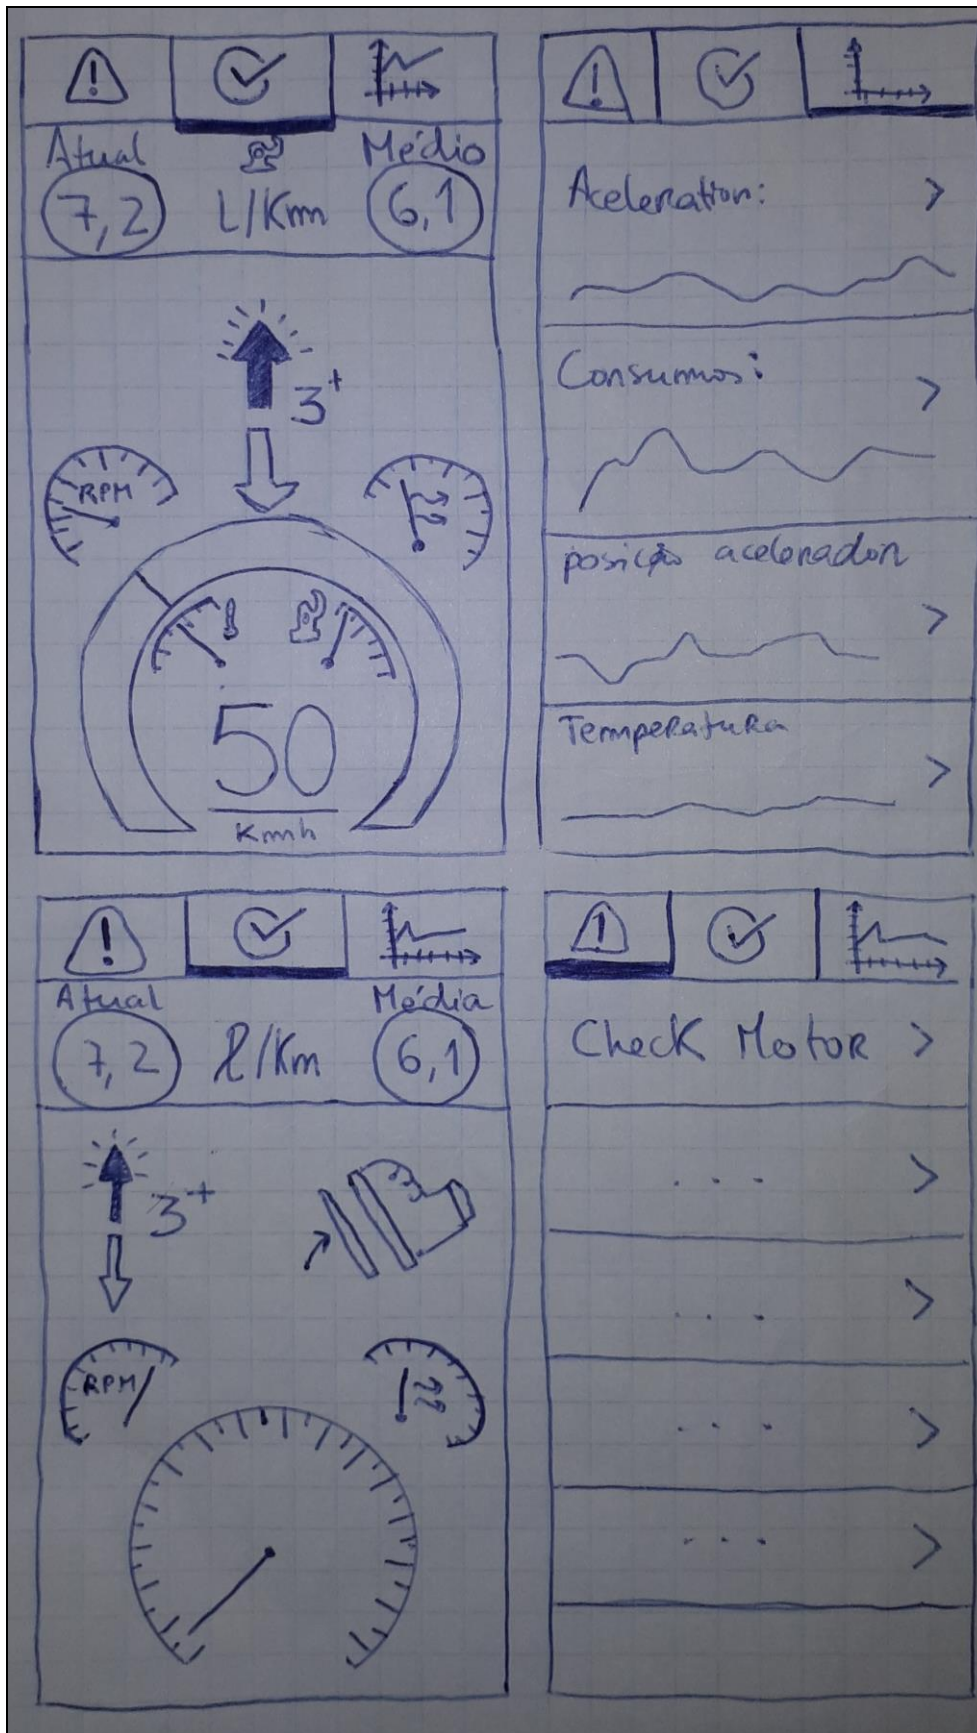 Atual Médio
7,2 L/Km 6,1
3+
RPM
50
Kmh
Aceleration:
Consumos:
posição acelerador
Temperatura
Atual Média
7,2 l/Km 6,1
3+
RPM
Check Motor
. . .
. . .
. . .
. . .